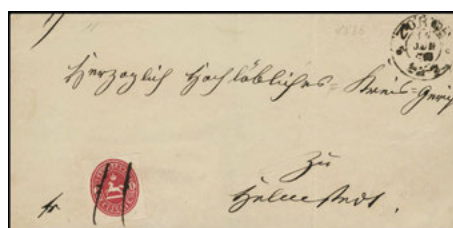 1866
ZORGE
Herzoglich Hochlöbliches Kreis-Gericht
Zu
Helmstedt.
fr